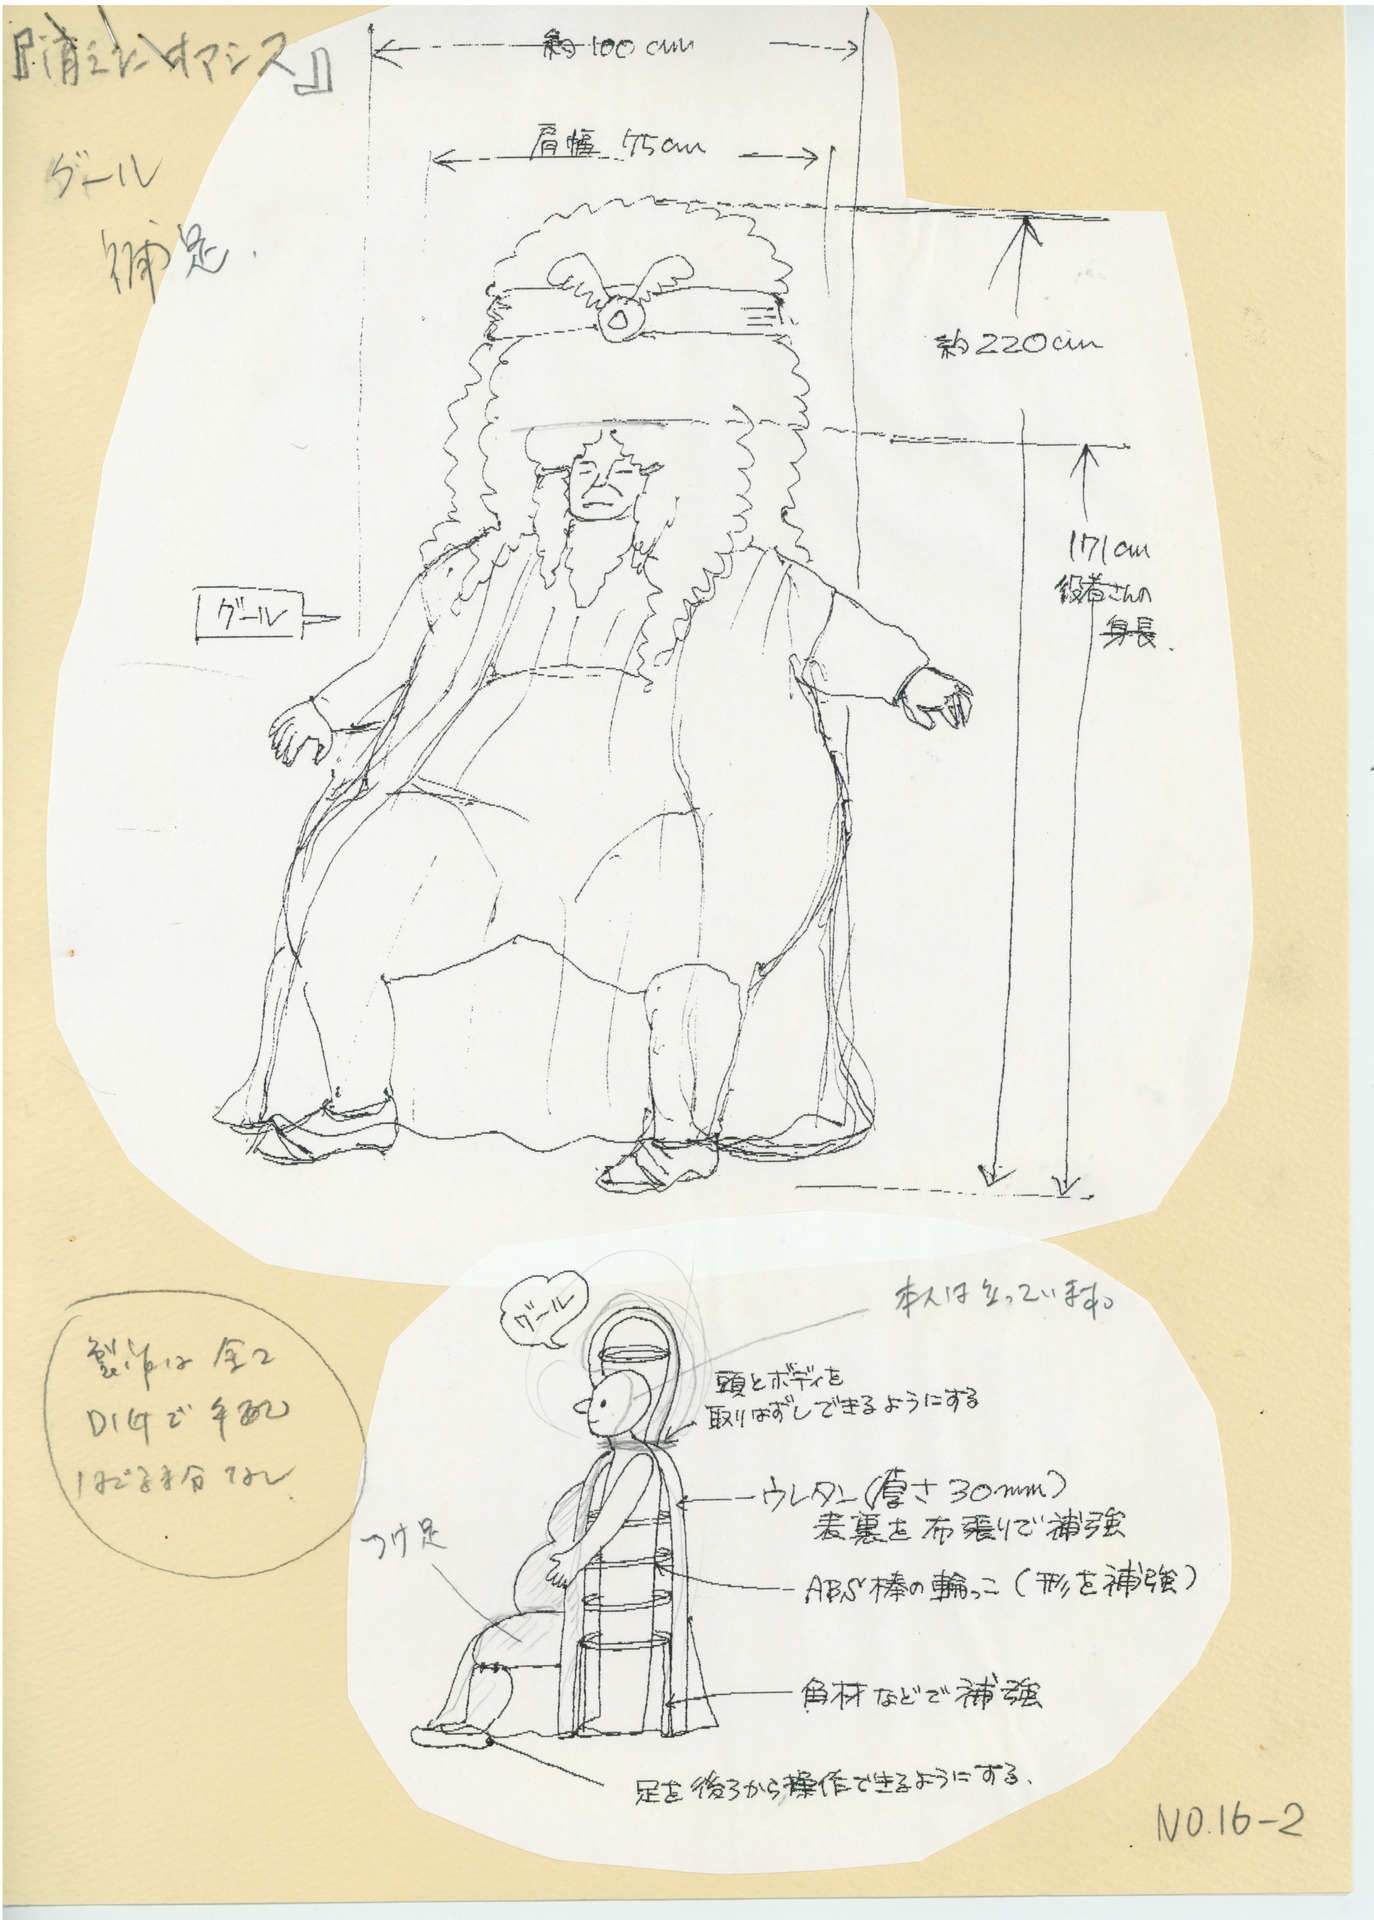 『消えたオアシス』
グール
補足.
約100cm
肩幅 75cm
約220cm
171cm
役者さんの
身長.
グール
グール
本人は立っています。
頭とボディを
取りはずしできるようにする
製作は全て
で手配
つけ足
ウレタン(厚さ30mm)
表裏を布張りで補強
ABS棒の輪っこ(形を補強)
角材などで補強
足を後ろから操作できるようにする.
NO.16-2